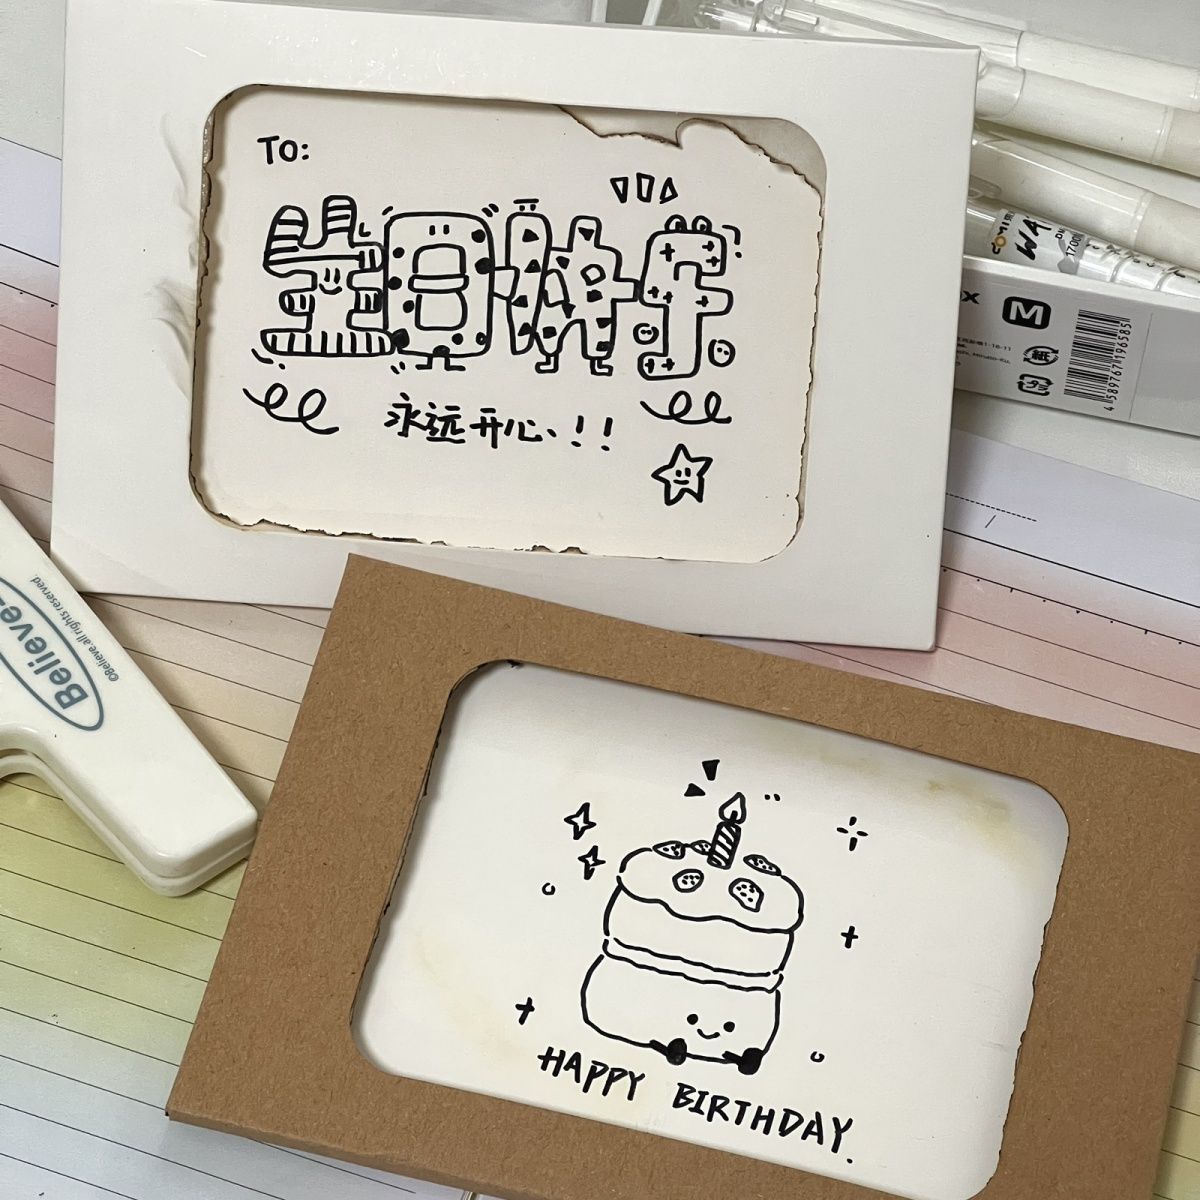 TO:
生日快乐
永远开心、!!
HAPPY BIRTHDAY.
Believe
©Believe.all rights reserved.
M
紙
4 589767 196585